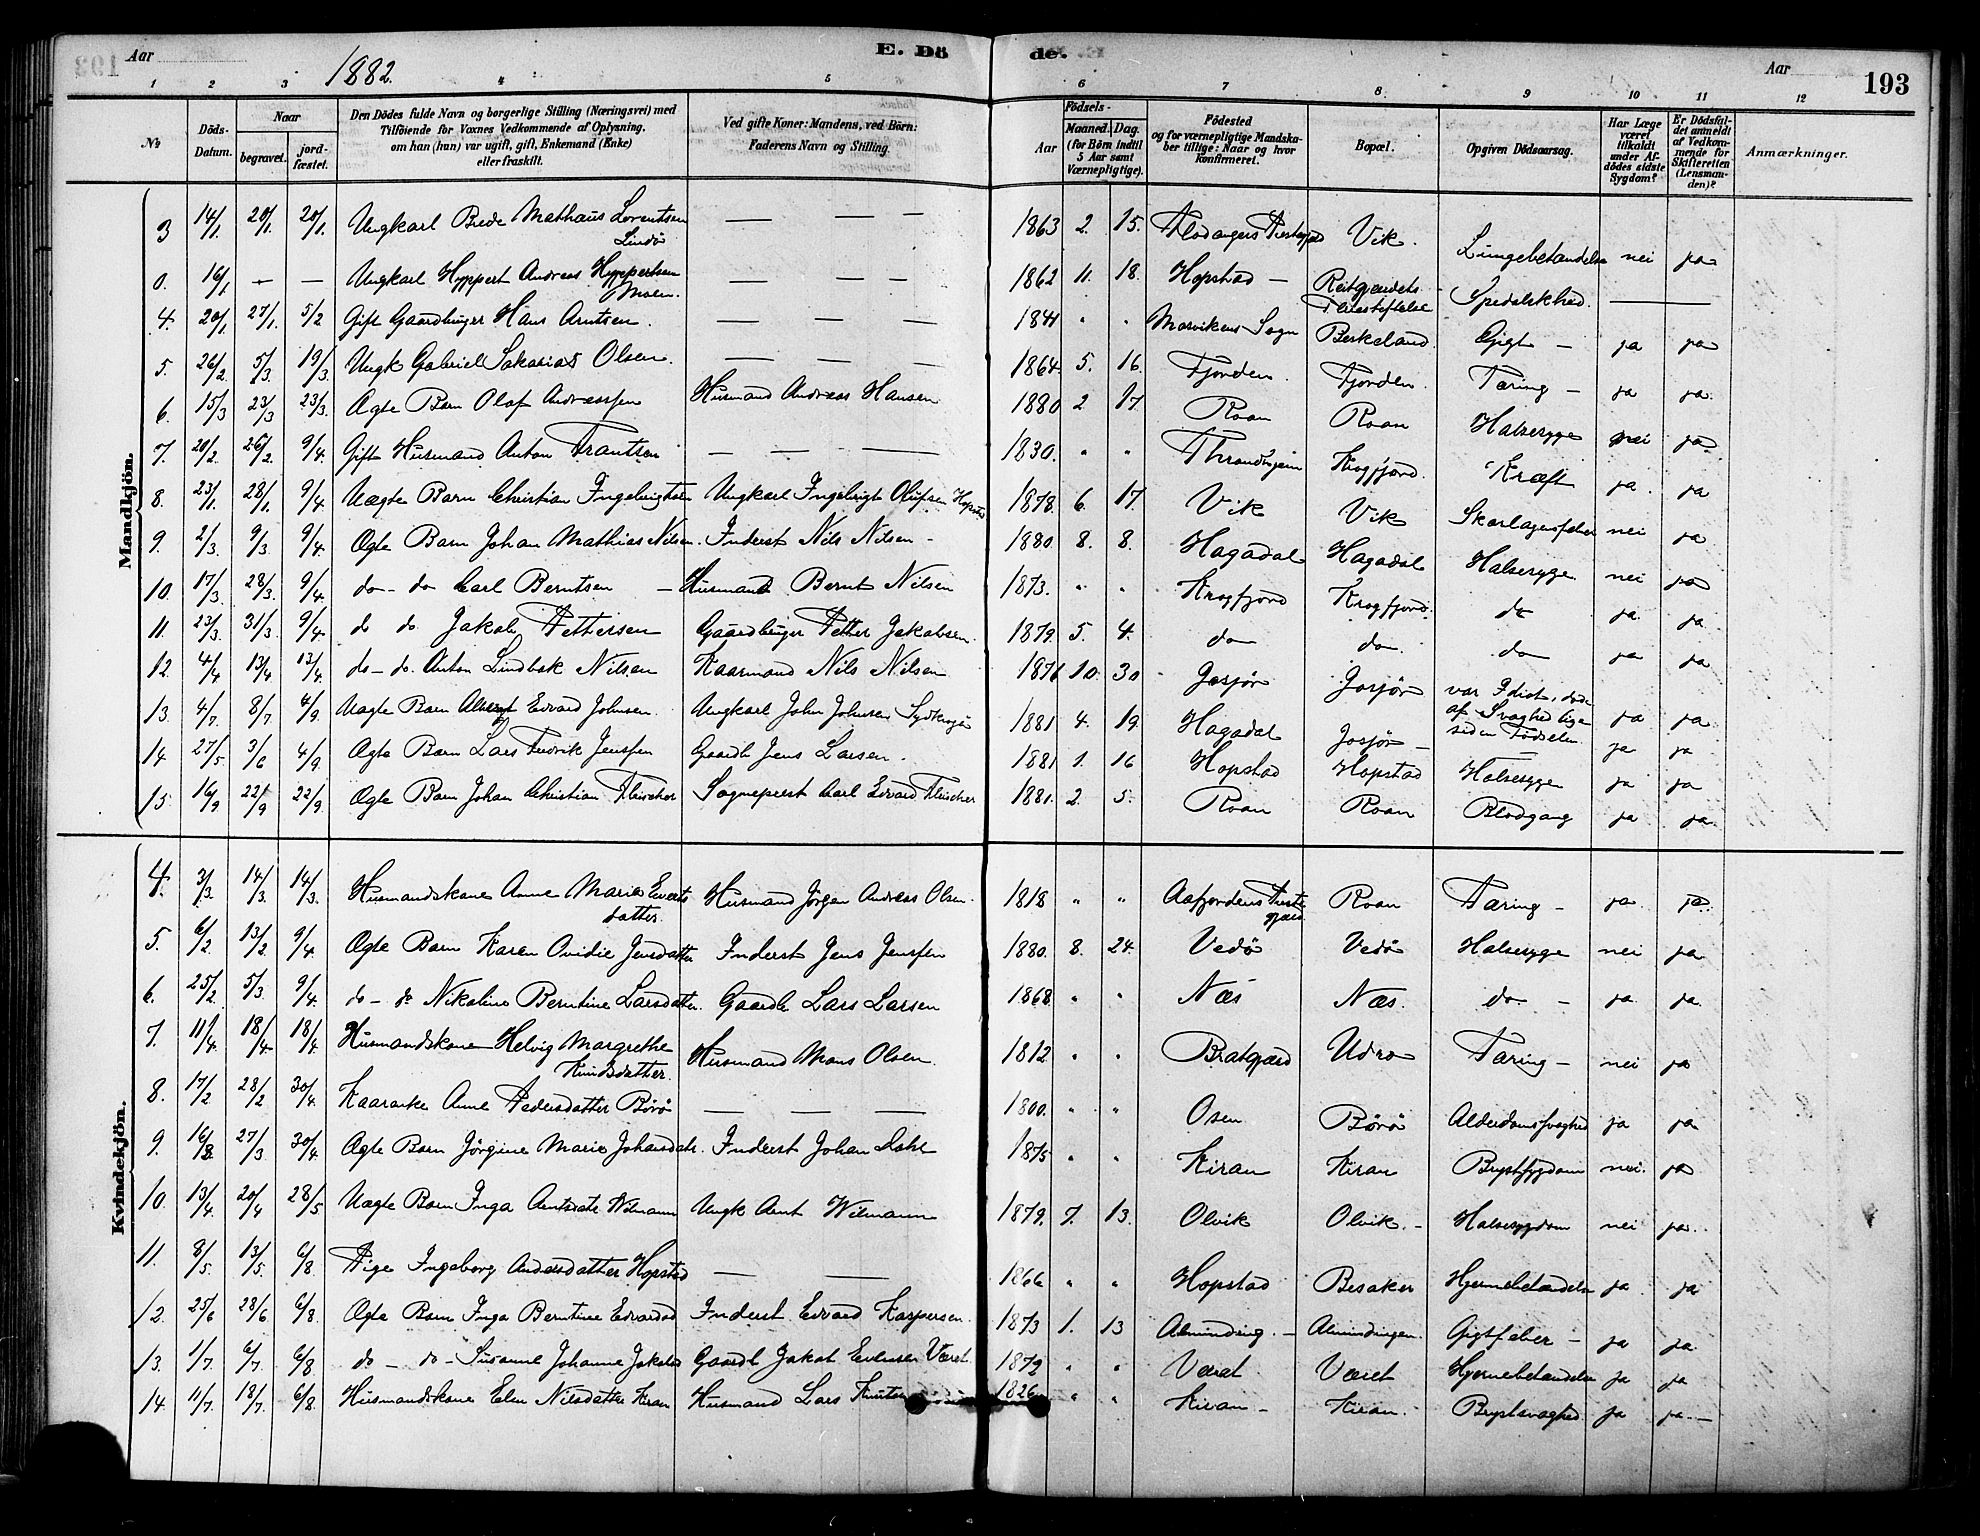 Aar 1882. E. Dö de. Aar 193
1 2 3 4 5 6 7 8 9 10 11 12
No Döds-Datum. Naar begravet. jordfæstet. Den Dödes fulde Navn og borgerlige Stilling (Næringsvei) med Tilföiende for Voxnes Vedkommende af Oplysning, om han (hun) var ugift, gift, Enkemand (Enke) eller fraskilt. Ved gifte Koner: Mandens, ved Börn: Faderens Navn og Stilling. Födsels- Aar Maaned. Dag. (for Börn indtil 5 Aar samt Værnepligtige). Födested og for værnepligtige Mandskaber tillige: Naar og hvor konfirmeret. Bopæl. Opgiven Dödsaarsag. Har Læge været tilkaldt under Afdödes sidste Sygdom? Er Dödsfaldet anmeldt af Vedkommende for Skifteretten (Lensmanden)? Anmærkninger.
Mandkjön.
3 14/1. 20/1. 20/1. Ungkarl Bede Mathæus Lorentsen Lindö — — — 1863 2. 15. Vik. Lungebetændelse nei ja
0. 16/1 — — Ungkarl Hyppert Andreas Hyppertsen Moen. — — — 1862 11. 18. Hopstad — Reitgjærdets Pleiestiftelse Spedalskhed. ———
4. 20/1 27/1. 5/2 Gift Gaardbruger Hans Arntsen. — — — 1841 " " Morvikens Sogn Berkeland. Gigt — ja ja
5. 26/2. 5/3. 19/3. Ungk Gabriel Sakarias Olsen. — — — 1864. 5. 16. Fjorden. Fjorden. Tæring — ja ja.
6. 15/3 23/3 23/3. Ægte Barn Olaf Andreassen Husmand Andreas Hansen 1880 2 17. Roan Roan Halsesyge nei ja.
7. 20/2. 26/2. 9/4. Gift Husmand Anton Frantsen — — — 1830. " " Throndhjem Krogfjord. Kræft ja. ja
8. 23/1. 28/1. 9/4 Uægte Barn Christian Ingebrigtsen Ungkarl Ingebrigt Olufsen Hopstad 1878. 6. 17. Vik Vik Skarlagensfeber nei ja
9. 2/3. 9/3. 9/4 Ægte Barn Johan Mathias Nilsen. Inderst Nils Nilsen — 1880. 8. 8. Hagadal Hagadal Halsesyge nei ja
10. 17/3. 28/3. 9/4 do — do Carl Berntsen — Husmand Bernt Nilsen 1873. " " Krogfjord Krogfjord. do ja. ja.
11. 23/3. 31/3. 9/4 do do. Jakob Pettersen Gaardbruger Petter Jakobsen. 1879. 5. 4. do do. do ja ja
12. 4/4 13/4 13/4. do — do. Anton Lindbak Nilsen Kaarmand Nils Nilsen 1876 10. 30 Josjör Josjör var Idiot, døde af Svaghed lige siden Fødselen ja ja.
13. 4/7. 8/7 4/9. Uægte Barn Albert Edvard Johnsen. Ungkarl John Johnsen 1881 4. 19. Hagadal Josjör — — ja ja
14. 27/5 3/6 4/9. Ægte Barn Lars Fredrik Jenssen Gaardb Jens Larsen. 1881 1. 16 Hopstad Hopstad Halsesyge ja ja
15. 16/9 22/9 22/9. Ægte Barn Johan Christian Fleischer Sognepræst Carl Edvard Fleischer 1881. 2. 5. Roan Roan Blodgang ja ja.
Kvindekjön.
4. 3/3. 14/3. 14/3. Husmandskone Anne Marie Everts datter. Husmand Jørgen Andreas Olsen. 1818 " " Aafjordens Præstegjæld Roan Tæring — ja ja.
5. 6/2 13/2 9/4 Ægte Barn Karen Ovidie Jensdatter Inderst Jens Jenssen 1880. 8. 24. Vedö Vedö Halsesyge nei ja
6. 25/2. 5/3. 9/4. do — do Nikoline Berntine Larsdatter. Gaardb Lars Larsen 1868 " " Næs Næs. do — ja ja.
7. 11/4. 18/4 18/4. Husmandskone Helvig Margrethe Knudsdatter. Husmand Mons Olsen. 1812 " " Bratgjærd Udro Tæring — nei ja
8. 17/2 28/2 30/4. Kaarenke Anne Pedersdatter Börö — — — 1800. " " Osen Börö Alderdomssvaghed ja ja
9. 16/3. 27/3 30/4. Ægte Barn Jörgine Marie Johansdatr. Inderst Johan Dahl 1875 " " Kiran Kiran Brystsygdom nei. ja
10. 13/4. 20/4 28/5 Uægte Barn Inga Arntsdatr Wilmann Ungk Arnt Wilmann 1879. 7. 13. Olvik Olvik. — Halssygdom nei ja.
11. 8/5. 13/5. 6/8 Pige Ingeborg Andersdatter Hopstad — — 1866 " " Hopstad Besaker Hjernebetændelse ja. ja
12. 25/6 28/6 6/8. Ægte Barn Inga Berntine Edvardsd Inderst Edvard Kaspersen. 1873 1. 13 Alminding. — Almindingen Gigtfeber — ja ja.
13. 1/7. 6/7. 6/8 do — do — Susanne Johanne Jakobsd Gaardb Jakob Evensen Været. 1872 " " Været Været Hjernebetændelse ja ja.
14. 11/7. 18/7. 6/8. Husmandskone Elen Nilsdatter Kiran Husmand Lars Knutsen 1826 " " Kiran — Kiran. Brystsvaghed. ja ja —